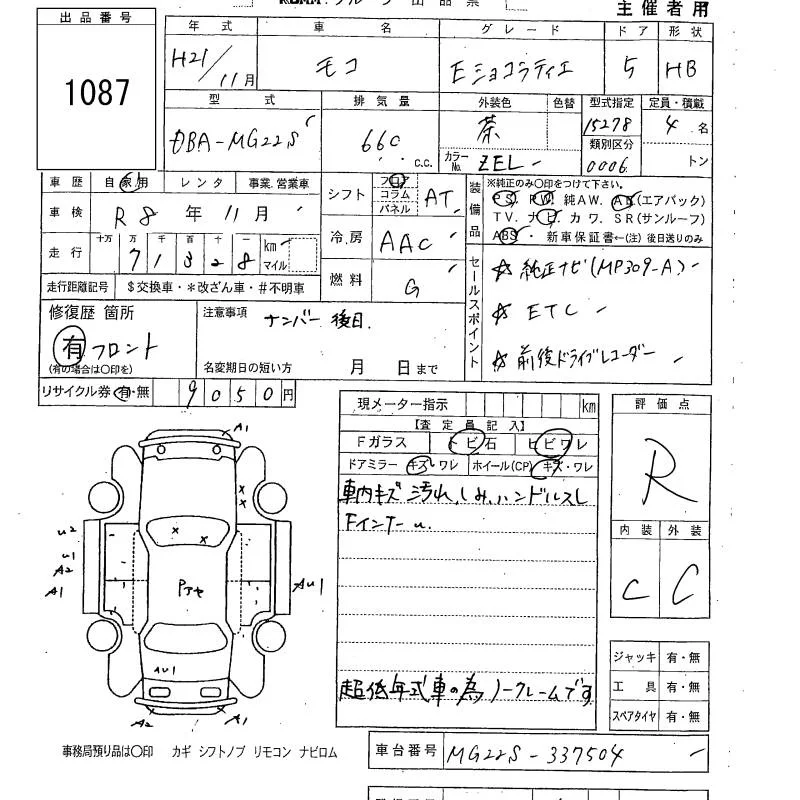 出品番号
1087
主催者用
年式 車名 グレード ドア 形状
H21/11月 モコ Eショコラティエ 5 HB
型式 排気量 外装色 色替 型式指定 定員・積載
DBA-MG22S 660 c.c. 茶 15278 4名
カラーNo. ZEL 類別区分 0006 トン
車歴 自家用 レンタ 事業.営業車
車検 R8年11月
走行 十万 万 千 百 十 一
71328 km マイル
走行距離記号 $交換車・*改ざん車・#不明車
シフト フロア コラム パネル AT
冷房 AAC
燃料 G
装備品
※純正のみ○印をつけて下さい。
PS. PW. 純AW. AB(エアバック)
TV. ナビ カワ. SR(サンルーフ)
ABS ・ 新車保証書←(注) 後日送りのみ
セールスポイント
☆ 純正ナビ(MP309-A)
☆ ETC
☆ 前後ドライブレコーダー
修復歴 箇所
有 フロント
(有の場合は○印を)
注意事項 ナンバー後日.
名変期日の短い方 月 日まで
リサイクル券 有・無 9050円
現メーター指示 km
【査定員記入】
Fガラス トビ石 ヒビワレ
ドアミラー キズ・ワレ ホイール(CP) キズ・ワレ
車内キズ 汚れ,しみ,ハンドルスレ
Fインナー u.
超低年式車の為ノークレームです
評価点
R
内装 外装
C C
ジャッキ 有・無
工具 有・無
スペアタイヤ 有・無
A1
x
x
x x
u2
u1
A2
A1
Pアヤ
AU1
AU1
A2 A1
事務局預り品は○印 カギ シフトノブ リモコン ナビロム
車台番号 MG22S-337504